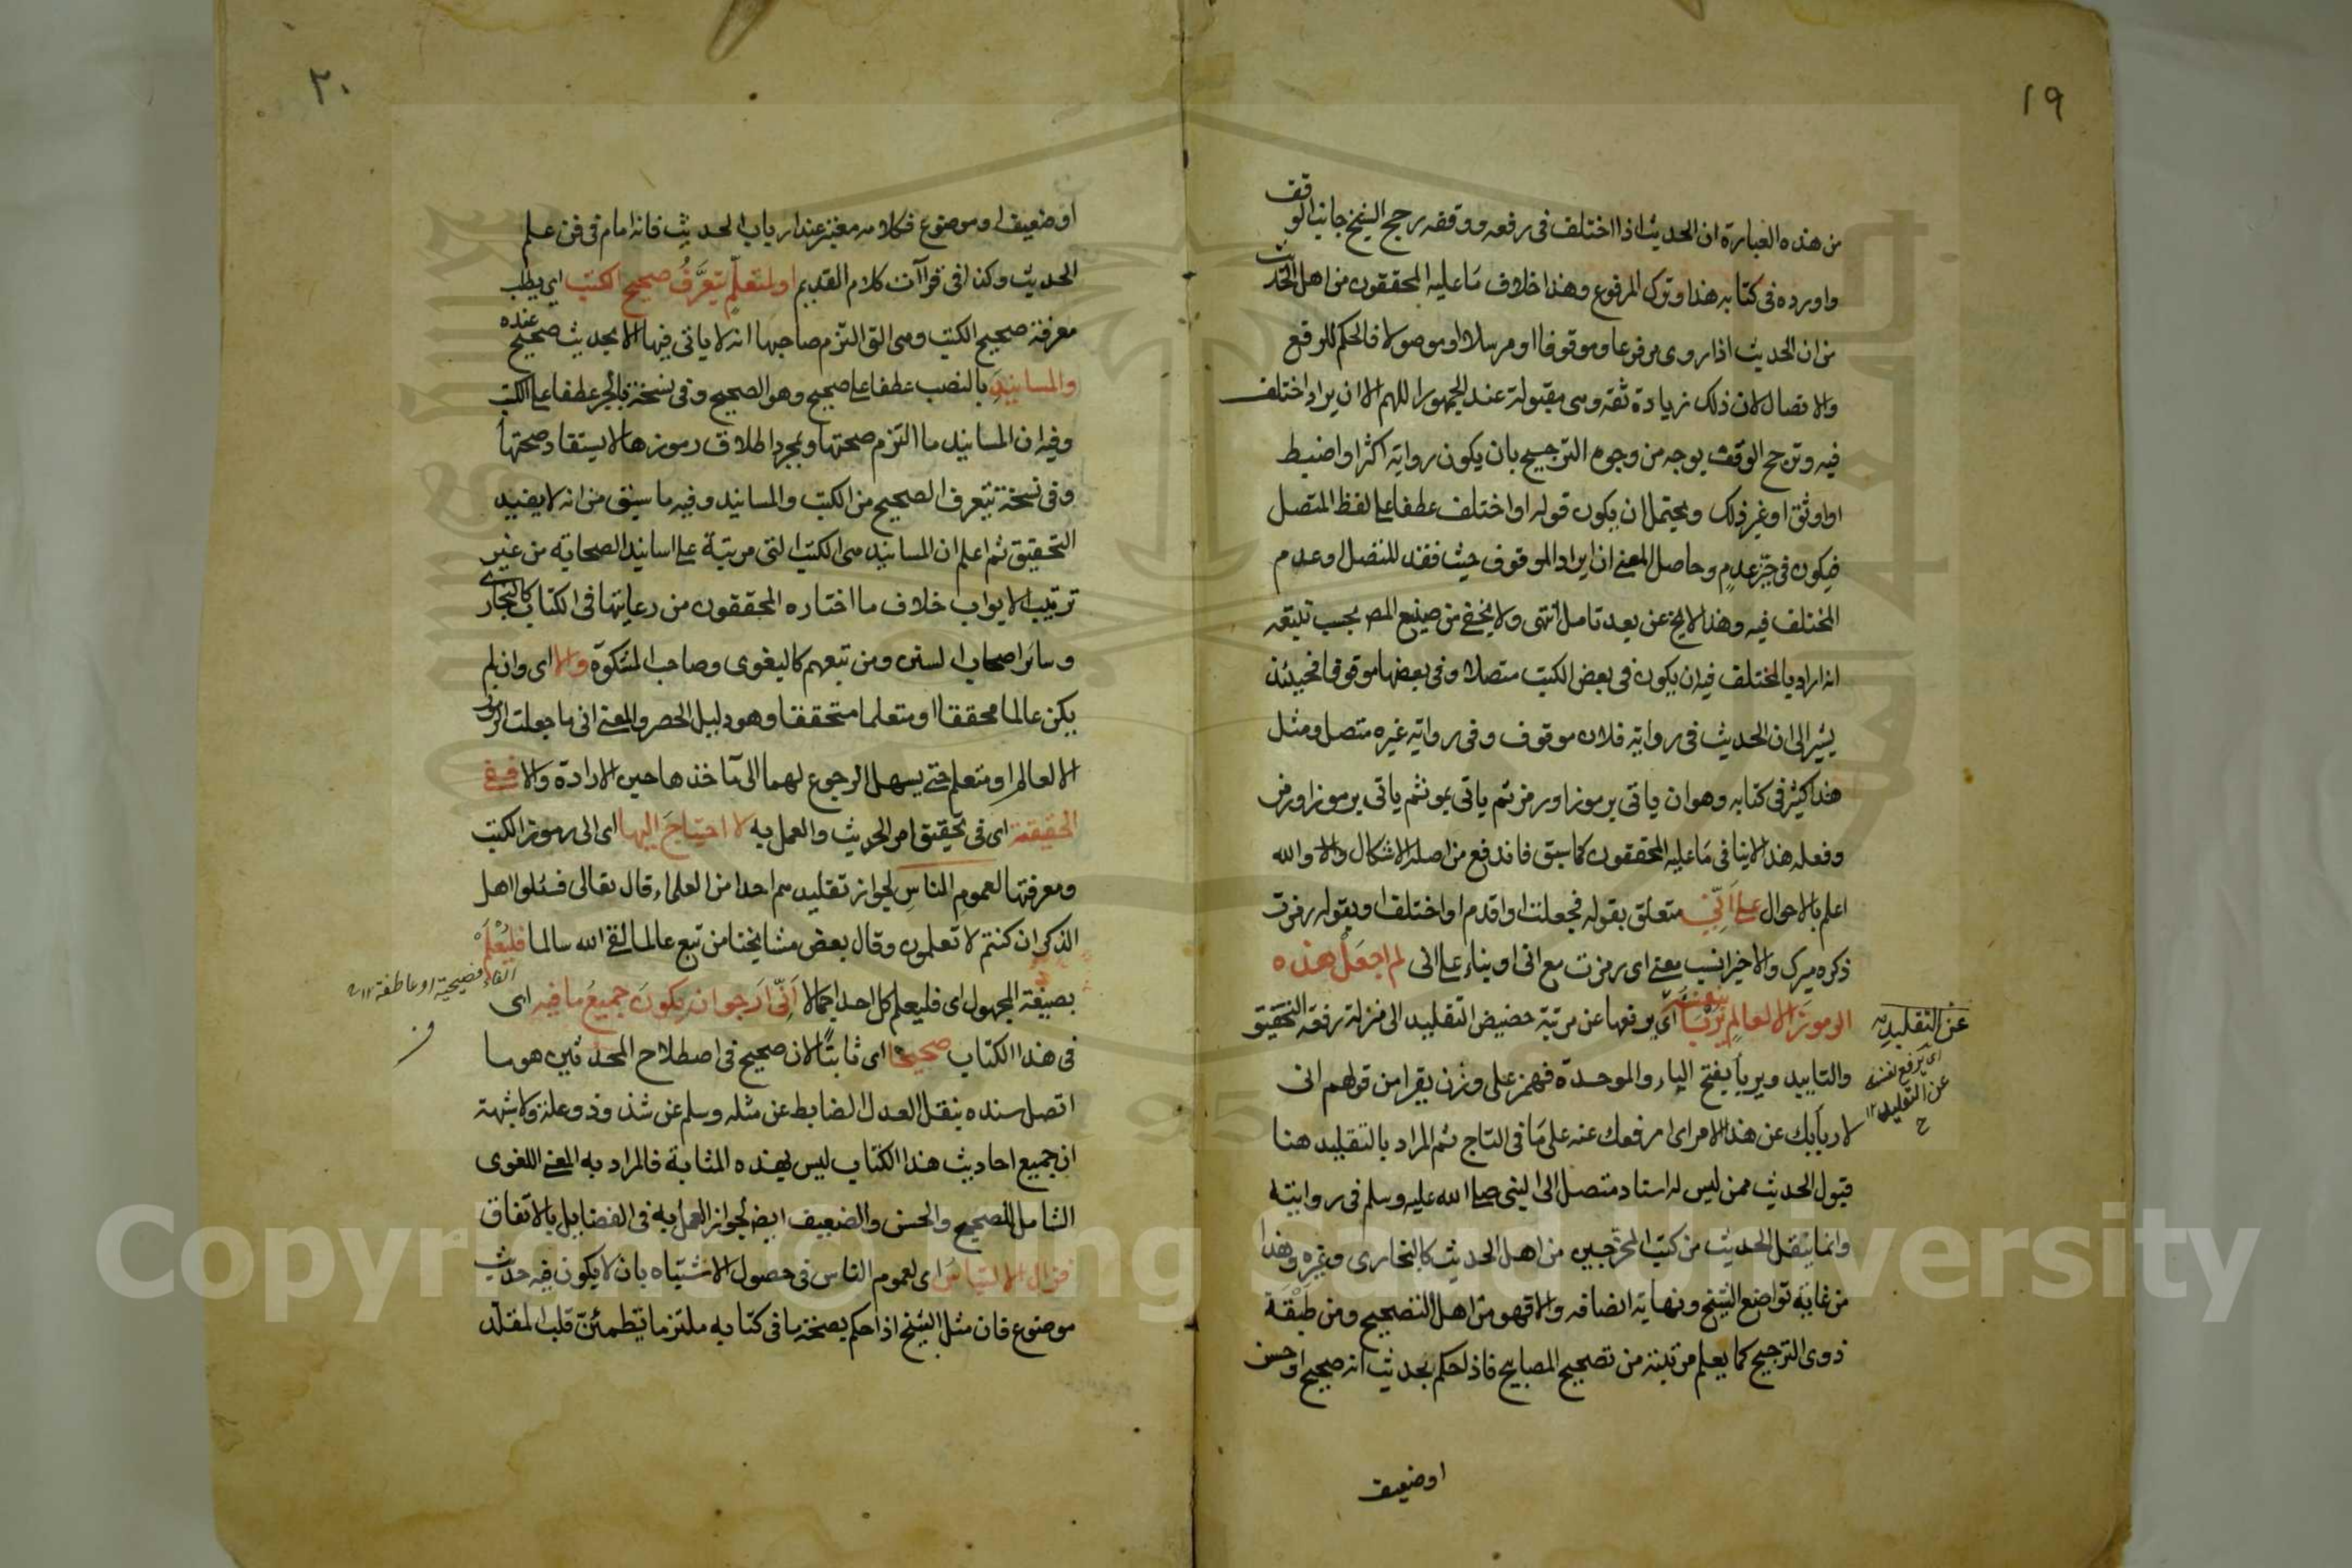 ١٩
من هذه العبارة ان الحديث اذا اختلف فى رفعه ووقفه رجح الشيخ جانب الوقف
واورده فى كتابه هذا وترك المرفوع وهذا خلاف ما عليه المحققون من اهل الحديث
من ان الحديث اذا روى مرفوعا وموقوفا او مرسلا او موصولا فالحكم للرفع
والاتصال لان ذلك زيادة ثقه وهى مقبولة عند الجمهور اللهم الا ان يراد اختلف
فيه وترجح الوقف بوجه من وجوه الترجيح بان يكون رواية اكثر او اضبط
او اوثق او غير ذلك ويحتمل ان يكون قوله او اختلف عطفا على لفظ المتصل
فيكون فى حيز عدم وحاصل المعنى ان ايراد الموقوف حيث فقد للتصل وعدم
المختلف فيه وهذا لا يخ عن بعد تامل انتهى ولا يخفى من صنيع المص بحسب تتبعه
انه اراد بالمختلف فيه ان يكون فى بعض الكتب متصلا وفى بعضها موقوفا فحينئذ
يشير الى ان الحديث فى رواية فلان موقوف وفى رواية غيره متصل ومثل
هذا كثير فى كتابه وهو ان ياتى برموز او رمز ثم ياتى بمو ثم ياتى برموز او رمز
وفعله هذا لا ينافى ما عليه المحققون كما سبق فاندفع من اصله الاشكال والا والله
اعلم بالاحوال على انى متعلق بقوله فجعلت او اقدم او اختلف او بقوله رمزت
ذكره ميرك والاخير انسب معنى اى رمزت مع انى او بناء على انى لم اجعل هذه
الرموز الا لعالم يربأ بنفسه اى يرفعها عن مرتبة حضيض التقليد الى منزلة رفعة التحقيق
عن التقليد
اى يرفع نفسه
عن التقليد ١٢
ح
والتاييد ويربأ بفتح الياء والموحدة فهمز على وزن يقرا من قولهم انى
لا ربأبك عن هذا الامر اى ارفعك عنه على ما فى التاج ثم المراد بالتقليد هنا
قبول الحديث ممن ليس له اسناد متصل الى النبى صلى الله عليه وسلم فى روايته
وانما ينقل الحديث من كتب المخرجين من اهل الحديث كالبخارى وغيره وهذا
من غاية تواضع الشيخ ونهاية انصافه والا فهو من اهل التصحيح ومن طبقة
ذوى الترجيح كما يعلم مرتبته من تصحيح المصابيح فاذا حكم بحديث انه صحيح او حسن
او ضعيف
٢٠
او ضعيف او موضوع فكلامه معتبر عند ارباب الحديث فانه امام فى فن علم
الحديث وكذا فى قرآت كلام القديم او لمتعلم يتعرف صحيح الكتب اى يطلب
معرفة صحيح الكتب وهى التى التزم صاحبها انه لا ياتى فيها الا بحديث صحيح عنده
والمسانيد بالنصب عطفا على صحيح وهو الصحيح وفى نسخة بالجر عطفا على الكتب
وفيه ان المسانيد ما التزم صحتها وبمجرد اطلاق رموزها لا يستفاد صحتها
وفى نسخة يتعرف الصحيح من الكتب والمسانيد وفيه ما سبق من انه لا يفيد
التحقيق ثم اعلم ان المسانيد هى الكتب التى مرتبة على اسانيد الصحابه من غير
ترتيب الابواب خلاف ما اختاره المحققون من رعايتها فى الكتاب كالبخارى
وسائر اصحاب السنن ومن تبعهم كالبغوى وصاحب المشكوة والا اى وان لم
يكن عالما محققا او متعلما متحققا وهو دليل الحصر والمعنى انى ما جعلت الرموز
الا لعالم او متعلم حتى يسهل الرجوع لهما الى مآخذها حين الارادة والا ففى
الحقيقة اى فى تحقيق امر الحديث والعمل به لا احتياج اليها اى الى رموز الكتب
ومعرفتها لعموم الناس لجواز تقليدهم احدا من العلماء قال تعالى فسئلوا اهل
الذكر ان كنتم لا تعلمون وقال بعض مشايخنا من تبع عالما لقى الله سالما فليعلم
الفاء فصيحية او عاطفة ١٢
بصيغة المجهول اى فليعلم كل احد اجمالا انى ارجو ان يكون جميع ما فيه اى
فى هذا الكتاب صحيحا اى ثابتا لان صحيح فى اصطلاح المحدثين هو ما
اتصل سنده بنقل العدل الضابط عن مثله وسلم عن شذوذ وعلة ولا شبهة
ان جميع احاديث هذا الكتاب ليس بهذه المثابة فالمراد به المعنى اللغوى
الشامل للصحيح والحسن والضعيف ايض لجواز العمل به فى الفضايل بالاتفاق
فزال الالتباس اى لعموم الناس فى حصول الاشتباه بان لا يكون فيه حديث
موضوع فان مثل الشيخ اذا حكم بصحة ما فى كتابه ملتزما تطمئن قلب المقلد
Copyright © King Saud University